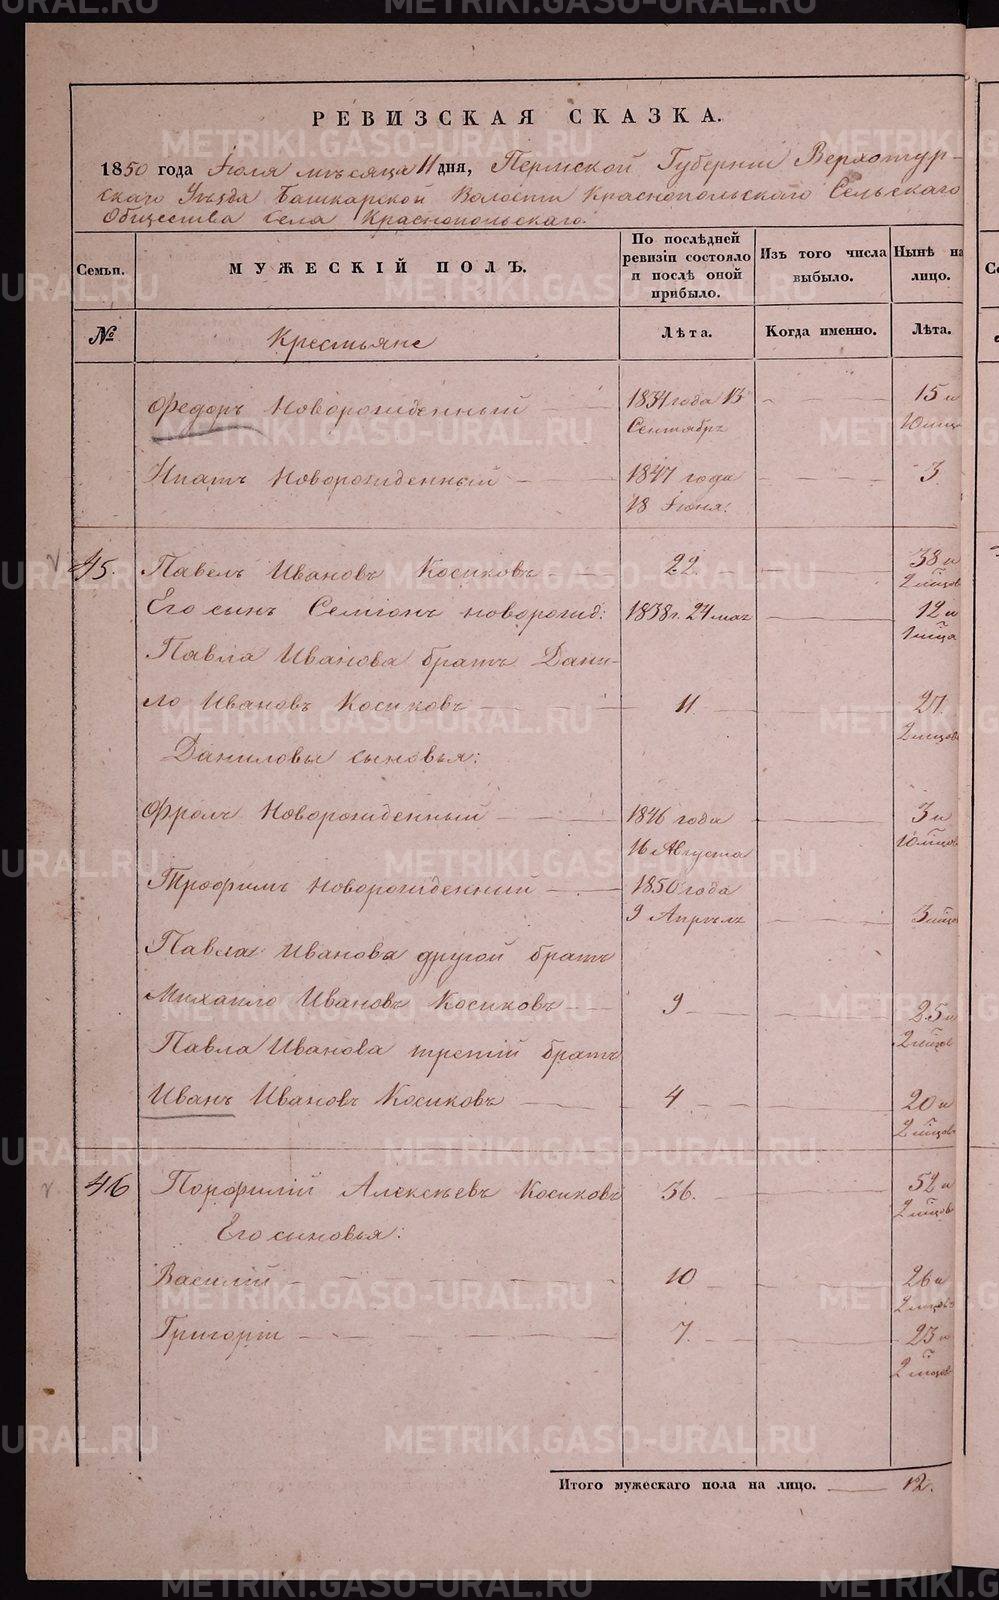 РЕВИЗСКАЯ СКАЗКА.
1850 года Іюля мѣсяца 11 дня, Пермской Губерніи Верхотур-
скаго Уѣзда Башкарской Волости Краснопольскаго Сельскаго
Общества села Краснопольскаго.
Семьи. МУЖЕСКІЙ ПОЛЪ. По послѣдней ревизіи состояло и послѣ оной прибыло. Изъ того числа выбыло. Нынѣ на лицо.
№ Крестьяне Лѣта. Когда именно. Лѣта.
Федоръ Новорожденный 1834 года 13 15 и
Сентябрь 10 мца
Ипатъ Новорожденный 1847 года 3
18 Іюня.
45. Павелъ Ивановъ Косиковъ 22. 38 и
2 мцов
Его сынъ Семіонъ новорожд: 1838 г. 24 мая 12 и
1 мца
Павла Иванова братъ Дани-
ло Ивановъ Косиковъ 11 27
2 мцов
Даниловы сыновья:
Фролъ Новорожденный 1846 года 3 и
16 Августа 10 мцов
Трофимъ Новорожденный 1850 года
9 Апрѣль 3 мцов
Павла Иванова другой братъ
Михаило Ивановъ Косиковъ 9 25 и
2 мцов
Павла Иванова третій братъ
Иванъ Ивановъ Косиковъ 4 20 и
2 мцов
46 Порфилій Алексѣевъ Косиковъ 36. 52 и
2 мцов
Его сыновья:
Василій 10 26 и
2 мцов
Григорій 7. 23 и
2 мцов
Итого мужескаго пола на лицо. 12.
METRIKI.GASO-URAL.RU